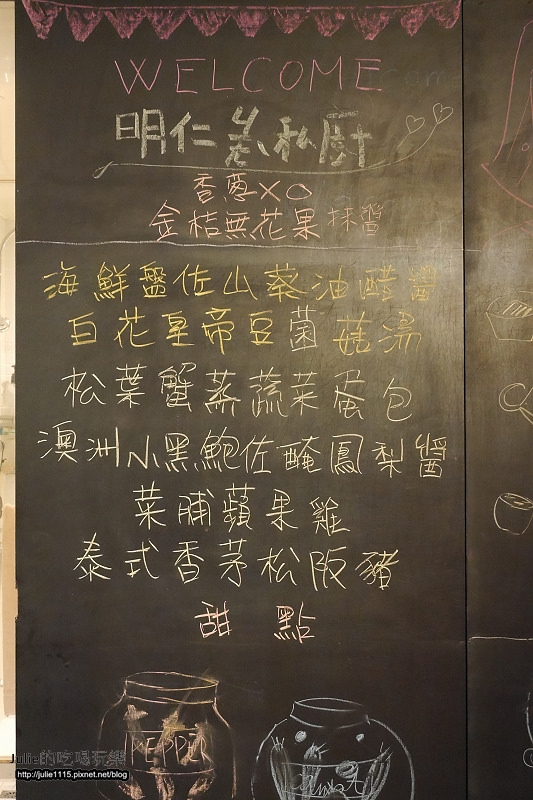 WELCOME
明仁 私廚
香蔥XO
金桔無花果抹醬
海鮮盤佐山葵油醋醬
白花皇帝豆菌菇湯
松葉蟹蒸蔬菜蛋包
澳洲小黑鮑佐醃鳳梨醬
菜脯蘋果雞
泰式香茅松阪豬
甜點
PEPPER
Julie的吃喝玩樂
http://julie1115.pixnet.net/blog